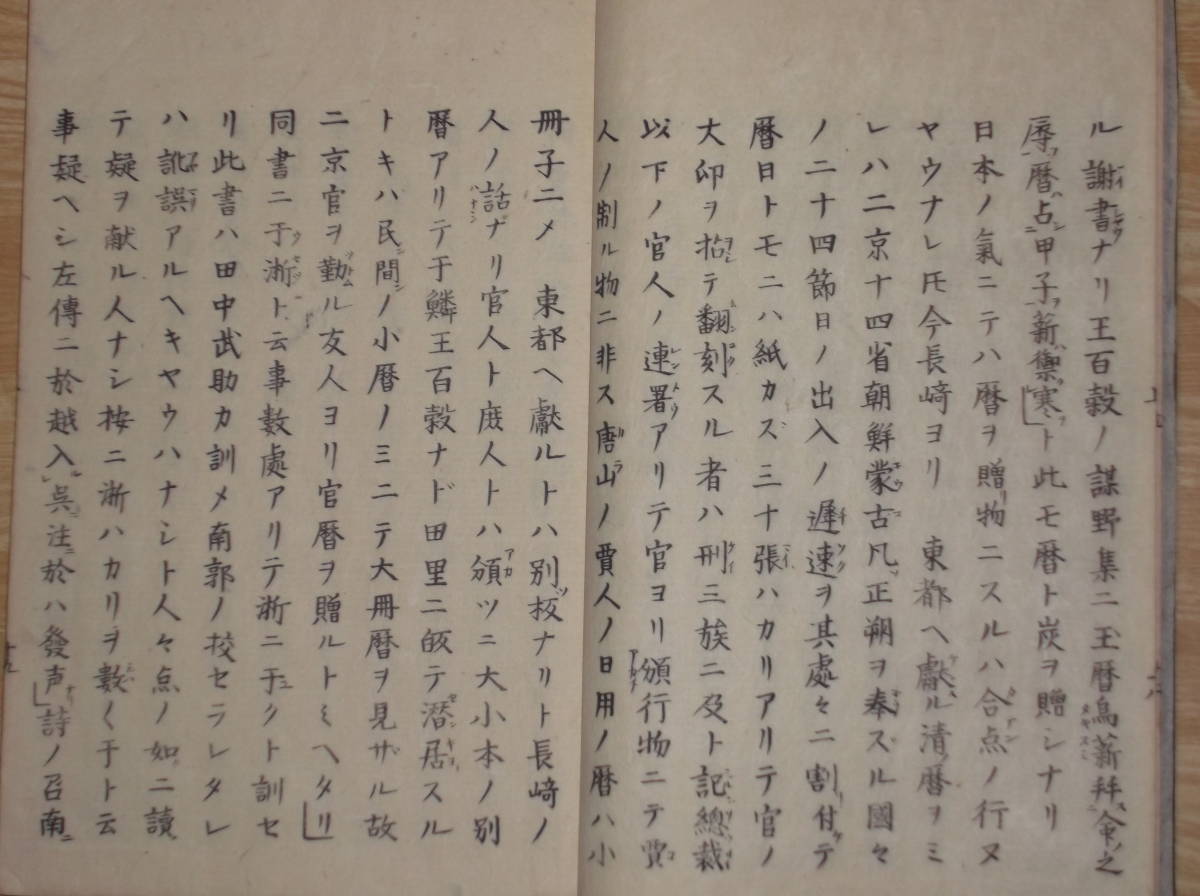 ル謝書ナリ王百穀ノ謀野集ニ玉暦烏薪拜命之
辱暦占甲子薪禦寒ト此モ暦ト炭ヲ贈シナリ
日本ノ氣ニテハ暦ヲ贈物ニスルハ合点ノ行ヌ
ヤウナレ𪜈今長﨑ヨリ 東都ヘ獻ル清暦ヲミ
レハ二京十四省朝鮮蒙古凡正朔ヲ奉ズル國々
ノ二十四節日ノ出入ノ遲速ヲ其處々ニ割付テ
暦日トモニハ紙カズ三十張ハカリアリテ官ノ
大印ヲ搨テ翻刻スル者ハ刑三族ニ及ト記總裁
以下ノ官人ノ連署アリテ官ヨリ頒行物ニテ賈
人ノ制ル物ニ非ス唐山ノ賈人ノ日用ノ暦ハ小
冊子ニメ 東都ヘ獻ルトハ別板ナリト長﨑ノ
人ノ話ナリ官人ト庶人トハ頒ツニ大小本ノ別
暦アリテ于鱗王百穀ナド田里ニ皈テ潜居スル
トキハ民間ノ小暦ノミニテ大冊暦ヲ見ザル故
ニ京官ヲ勤ル友人ヨリ官暦ヲ贈ルトミヘタリ
同書ニ于浙ト云事數處アリテ浙ニ于クト訓セ
リ此書ハ田中武助カ訓メ南郭ノ校セラレタレ
ハ訛誤アルヘキヤウハナシト人々点ノ如ニ讀
テ疑ヲ献ル人ナシ按ニ浙ハカリヲ數〱于ト云
事疑ヘシ左傳ニ於越入呉注ニ於ハ發声詩ノ召南